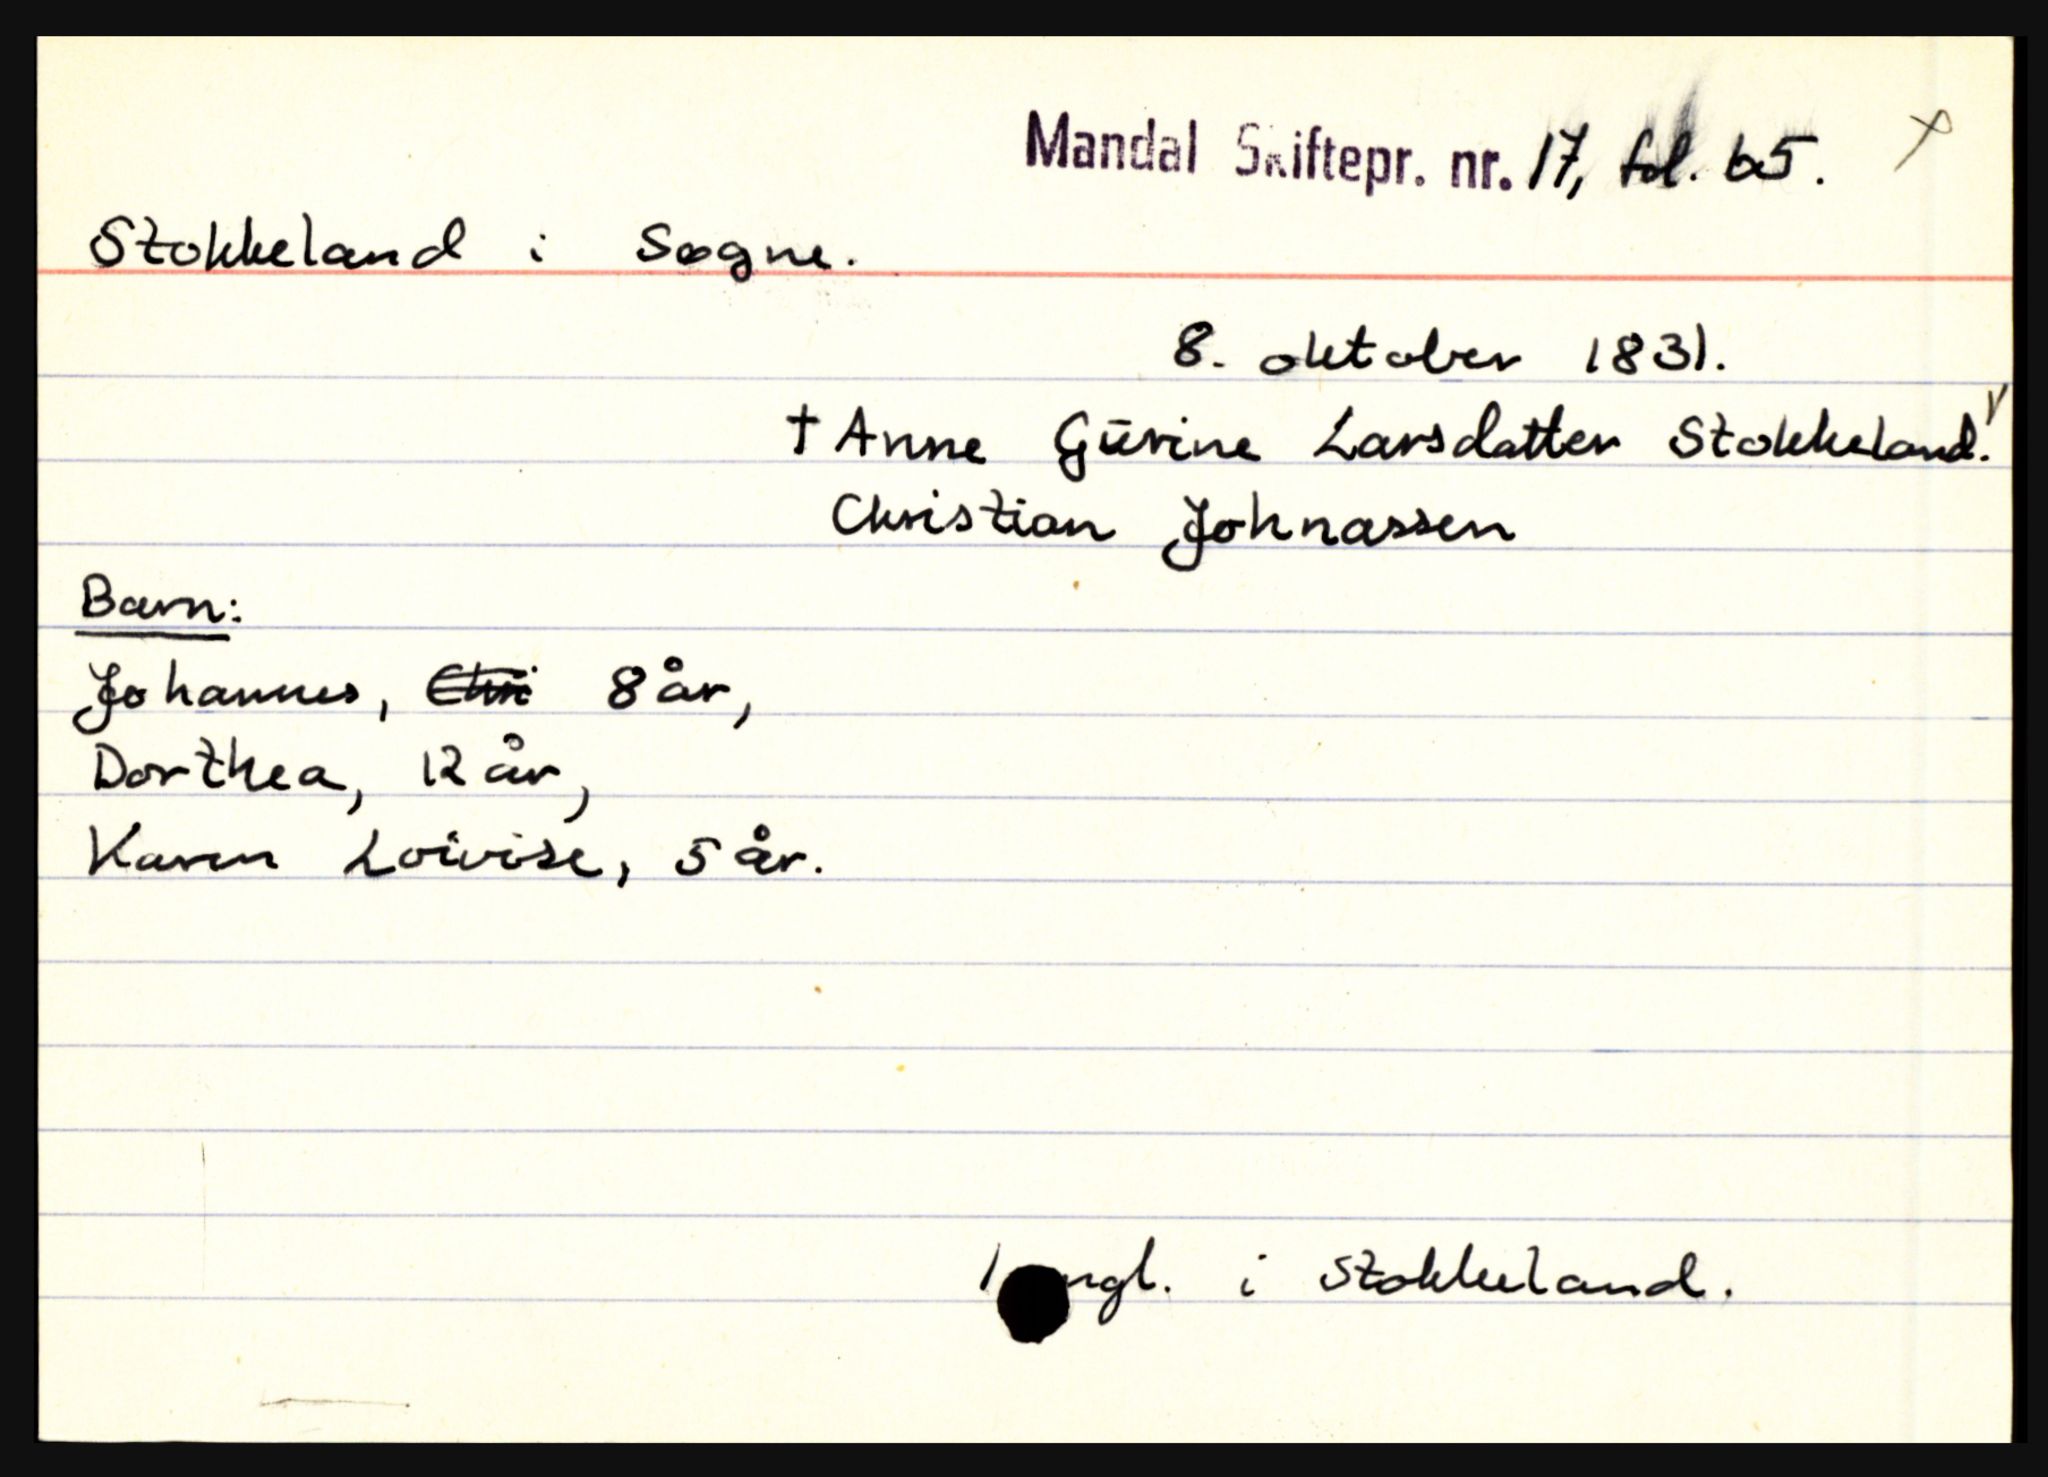 Mandal Skiftepr. nr. 17, fol. 65.
Stokkeland i Søgne.
8. oktober 1831.
† Anne Gurine Larsdatter Stokkeland.
Christian Johnassen
Barn:
Johannes, Chri 8 år,
Dorthea, 12 år,
Karen Lovise, 5 år.
1 ngl. i Stokkeland.